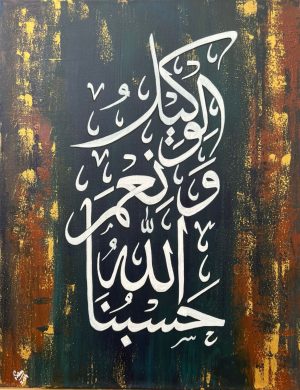 حَسْبُنَا
اللّٰهُ
وَنِعْمَ
الْوَكِيْلُ